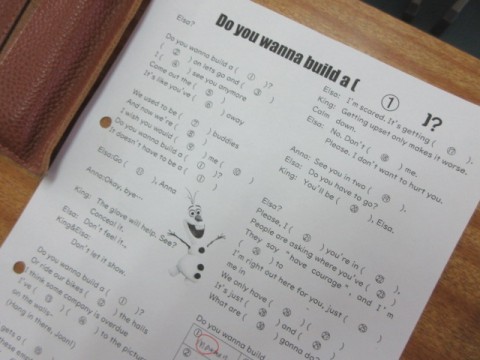 Do you wanna build a ( ① )?
Elsa?
Do you wanna build a ( ① )?
( ② ) on lets go and ( )
I ( ) see you anymore
Come out the ( ) away
It's like you've (
We used to be ( ) buddies
And now we're (
I wish you would ( ) me ( )
Do you wanna build a (
It doesn't have to be a (
Elsa:Go ( ), Anna
Anna:Okay, bye~
King: The glove will help. See?
Conceal it.
Elsa: Don't feel it~
King&Elsa:
Don't let it show.
Do you wanna build a ( ① )?
Or ride our bikes ( ) the halls
I think some company is overdue
I've ( ) ( ) to the pictures
on the walls~
(Hang in there, Joan!)
gets a (
Elsa: I'm scared. It's getting ( ).
King: Getting upset only makes it worse.
Calm down.
Elsa: No. Don't ( ) me.
Please. I don't want to hurt you.
Anna: See you in two ( ).
Elsa: Do you have to go?
King: You'll be ( ), Elsa.
Elsa?
Please, I ( ) you're in (
People are asking where you've ( )
They say "have courage", and I'm
( ) to
I'm right out here for you, just ( )
me in
We only have (
It's just ( ) and ( )
What are ( ) gonna do?
Do you wanna build